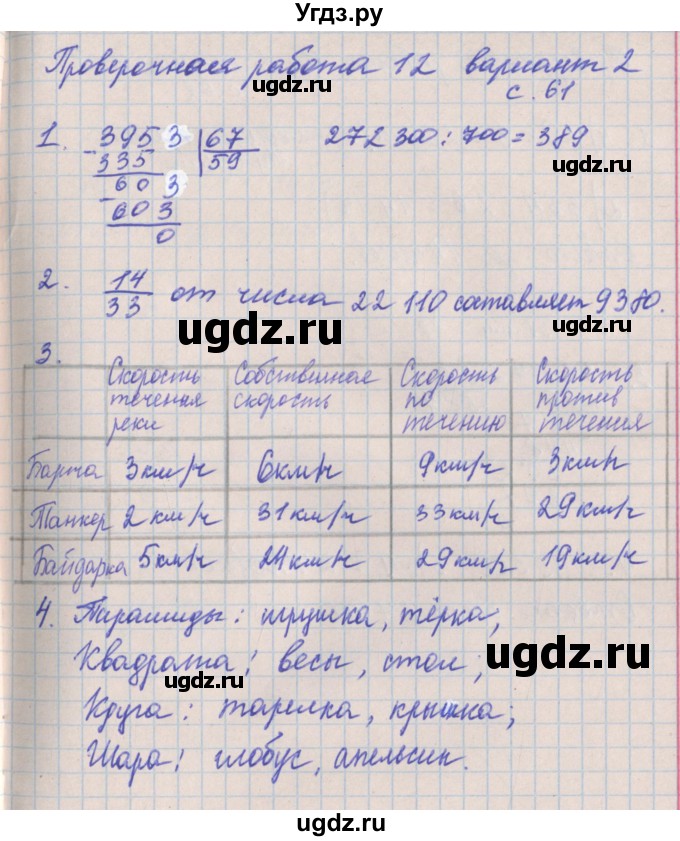 Угдз.ру
Проверочная работа 12 вариант 2
с. 61
1. 3953 | 67 272 300 : 700 = 389
- 335 59
603
- 603
0
2. 14/33 от числа 22 110 составляет 9380.
ugdz.ru
ugdz.ru
3.
Скорость течения реки | Собственная скорость | Скорость по течению | Скорость против течения
Баржа 3км/ч 6км/ч 9км/ч 3км/ч
Танкер 2 км/ч 31км/ч 33км/ч 29км/ч
Байдарка 5км/ч 24км/ч 29км/ч 19км/ч
ugdz.ru
4. Пирамиды: игрушка, тёрка;
Квадрата: весы, стол;
ugdz.ru
ugdz.ru
Круга: тарелка, крышка;
Шара: глобус, апельсин.
ugdz.ru
ugdz.ru